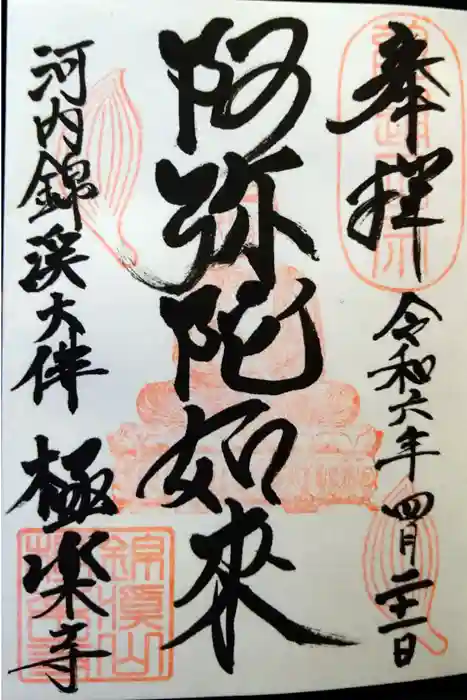 奉拝
令和六年四月二十一日
阿弥陀如来
河内錦渓大伴
極楽寺
錦渓山
極楽寺